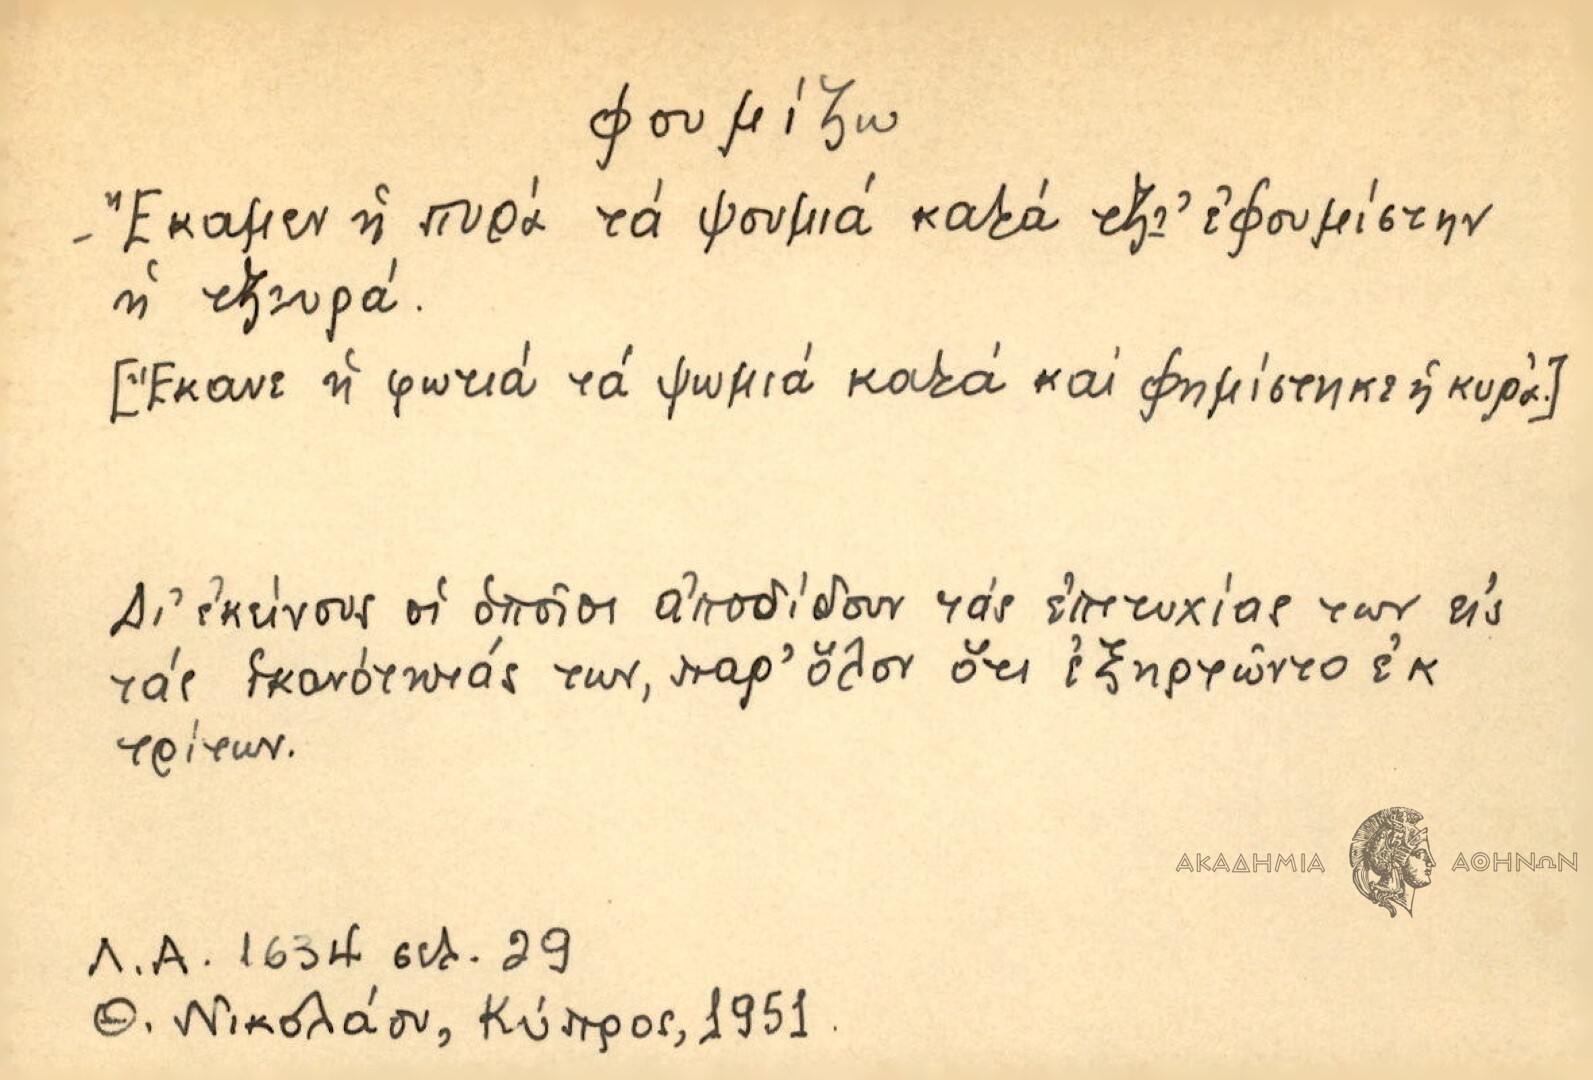 φουμίζω
- Ἔκαμεν ἡ πυρά τά ψουμιά καλά τζ̌ι' ἐφουμίστην
ἡ τζ̌υρά.
[Ἔκανε ἡ φωτιά τά ψωμιά καλά καί φημίστηκε ἡ κυρά.]
Δι' ἐκείνους οἱ ὁποῖοι ἀποδίδουν τάς ἐπιτυχίας των εἰς
τάς ἱκανότητάς των, παρ' ὅλον ὅτι ἐξηρτῶντο ἐκ
τρίτων.
ΑΚΑΔΗΜΙΑ ΑΘΗΝΩΝ
Λ.Α. 1634 σελ. 29
Θ. Νικολάου, Κύπρος, 1951.